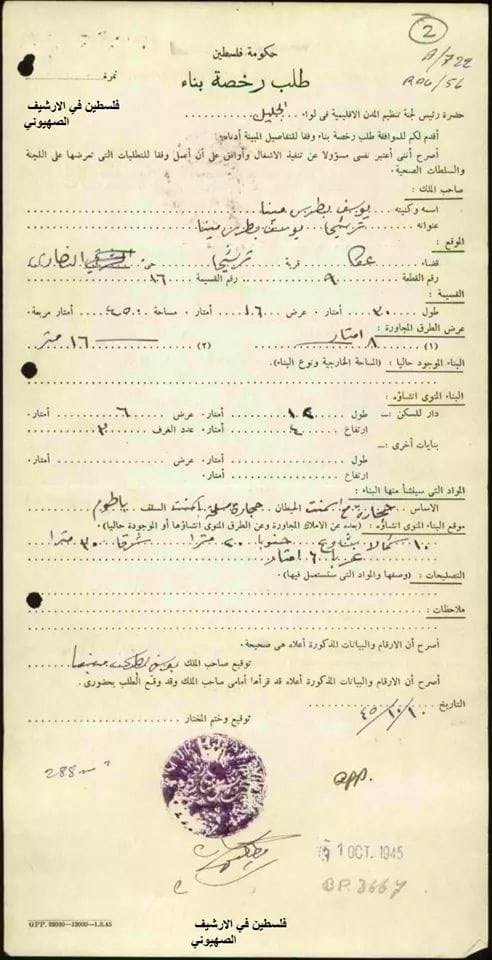 2
A/722
RAG/56
حكومة فلسطين
طلب رخصة بناء
نمرة
فلسطين في الارشيف
الصهيوني
حضرة رئيس لجنة تنظيم المدن الاقليمية في لواء الجليل
أقدم لكم للموافقة طلب رخصة بناء وفقا للتفاصيل المبينة أدناه:
أصرح أننى أعتبر نفسى مسؤولا عن تنفيذ الاشغال وأوافق على أن أعمل وفقا للمتطلبات التى تعرضها على اللجنة
والسلطات الصحية.
صاحب الملك:
اسمه وكنيته يوسف بطرس مينا
عنوانه ترشيحا يوسف بطرس مينا
الموقع:
قضاء عكا قرية ترشيحا حى النصارى
رقم القطعة ٩ رقم القسيمة ١٦
القسيمة:
طول ٣٠ أمتار. عرض ١٦ أمتار. مساحة أمتار مربعة.
عرض الطرق المجاورة:
(١) ٨ امتار (٢) ١٦ متر
البناء الموجود حاليا: (المساحة الخارجية ونوع البناء).
البناء المنوى انشاؤه:
دار للسكن:— طول ١٤ أمتار. عرض ٦ أمتار.
ارتفاع ٤ أمتار. عدد الغرف ٣
بنايات أخرى:—
طول أمتار. عرض أمتار.
ارتفاع أمتار.
المواد التى سينشأ منها البناء:
الاساس حجارة مع اسمنت الحيطان حجارة السقف باطوم
موقع البناء المنوى انشاؤه: (بعده عن الاملاك المجاورة وعن الطرق المنوى انشاؤها أو الموجودة حاليا).
١٠ شمالا بشارع جنوبا ٢٠ مترا شرقا ٣٠ مترا
غربا ٦ امتار
التصليحات: (وصفها والمواد التى ستستعمل فيها).
ملاحظات:
أصرح أن الارقام والبيانات المذكورة أعلاه هى صحيحة.
توقيع صاحب الملك
أصرح أن الارقام والبيانات المذكورة أعلاه قد قرأها أمامى صاحب الملك وقد وقع الطلب بحضورى.
التاريخ ٤٥/١٠/١٠ توقيع وختم المختار
288
app.
1 OCT. 1945
B.P. 3667
GPP. 22030—12000—1.3.45
فلسطين في الارشيف
الصهيوني